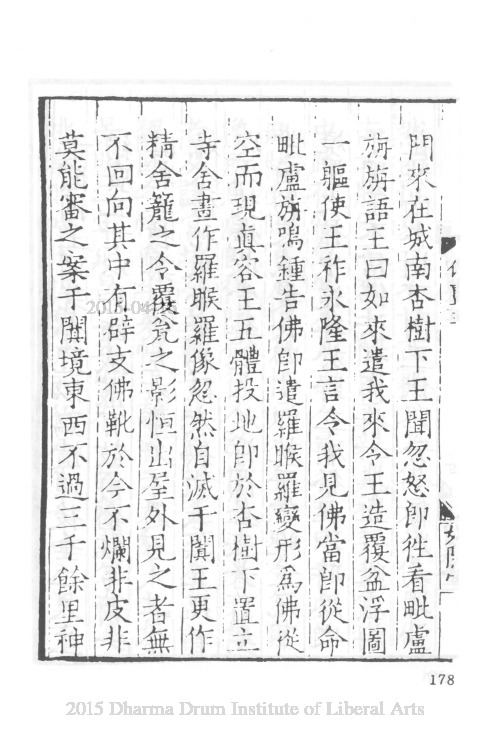 門來在城南杏樹下王聞忽怒即徃看毗盧
旃旃語王曰如來遣我來令王造覆盆浮圖
一軀使王祚永隆王言令我見佛當即從命
毗盧旃鳴鍾告佛即遣羅睺羅變形爲佛從
空而現眞容王五體投地即於杏樹下置立
寺舍畫作羅睺羅像忽然自滅于闐王更作
精舍籠之令覆瓮之影恒出屋外見之者無
不回向其中有辟支佛靴於今不爛非皮非
莫能審之案于闐境東西不過三千餘里神
178
2015 Dharma Drum Institute of Liberal Arts